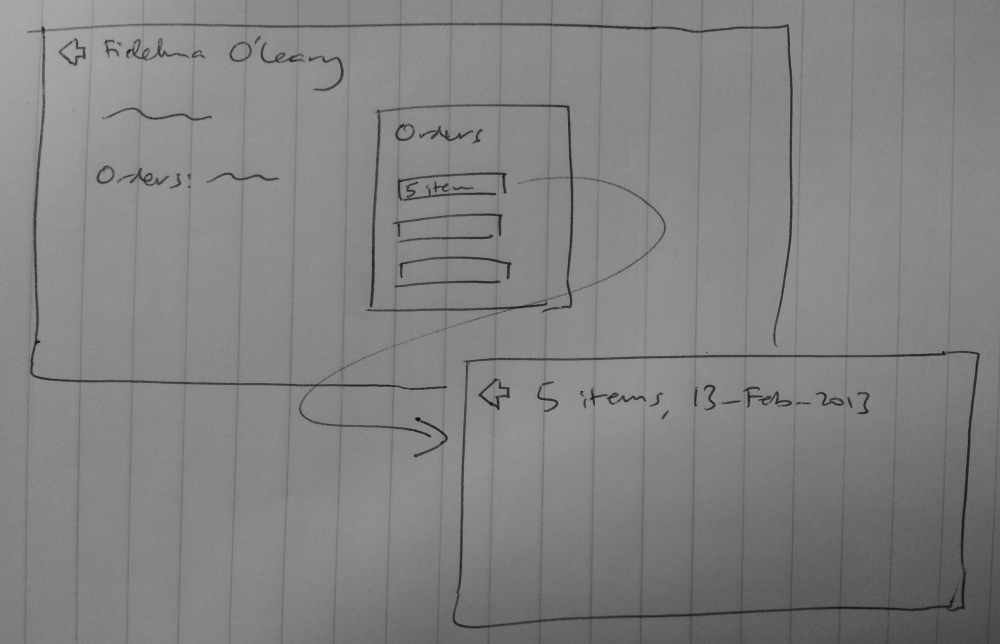 Fidelma O'Leary
Orders:
Orders
5 item
5 items, 13-Feb-2013